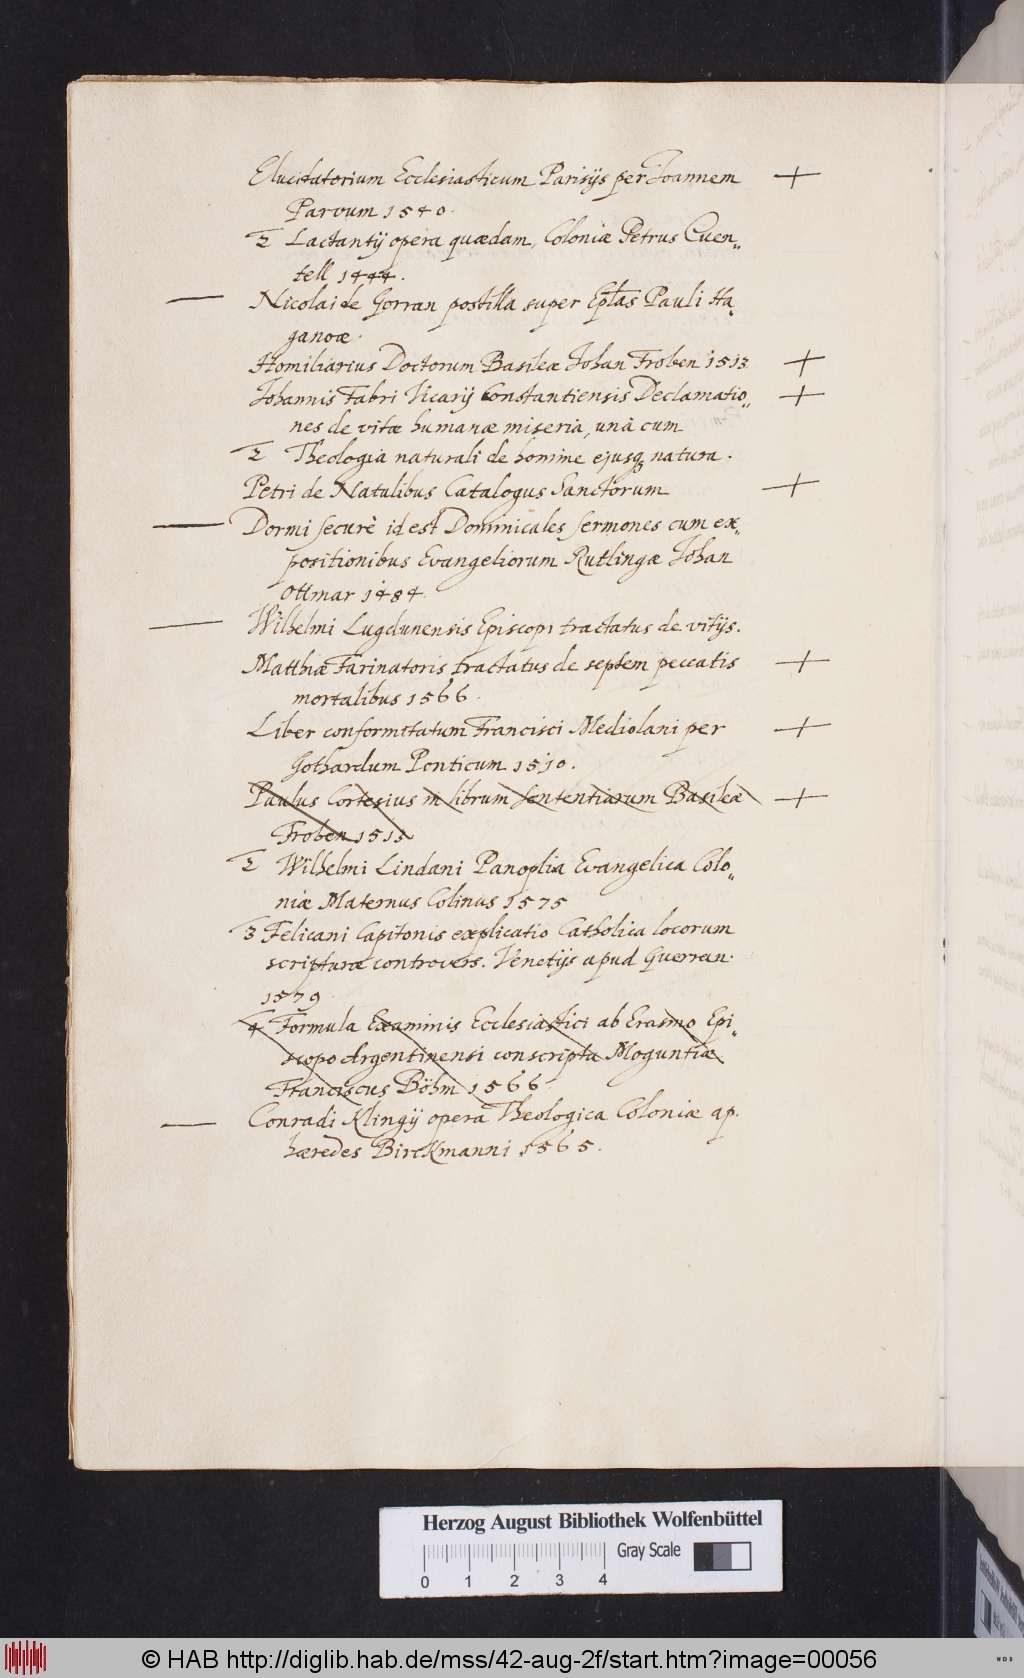 Elucidatorium Ecclesiasticum Parisijs per Joannem +
Parvum 1540.
2 Lactantij opera quædam, Coloniæ Petrus Quen„
tell 1444.
— Nicolai de Gorran postilla super Eplas Pauli Ha„
ganoæ.
Homiliarius Doctorum Basileæ Johan Froben 1513 +
Johannis Fabri Vicarij Constantiensis Declamatio„ +
nes de vitæ humanæ miseria, unà cum
2 Theologia naturali de homine ejusq natura.
Petri de Natalibus Catalogus Sanctorum +
— Dormi securè id est Dominicales sermones cum ex„
positionibus Evangeliorum Rutlingæ Johan
Ottmar 1484.
— Wilhelmi Lugdunensis Episcopi tractatus de vitijs.
Matthiæ Farinatoris tractatus de septem peccatis +
mortalibus 1566.
Liber conformitatum Francisci Mediolani per +
Gothardum Ponticum 1510.
Paulus Cortesius in librum sententiarum Basileæ +
Froben 1513
2 Wilhelmi Lindani Panoplia Evangelica Colo„
niæ Maternus Colinus 1575
3 Felicani Capitonis explicatio Catholica locorum
scripturæ controvers. Venetijs apud Guerræn.
1579
4 Formula Examinis Ecclesiastici ab Erasmo Epi„
scopo Argentinensi conscripta Moguntiæ
Franciscus Böhm 1566
— Conradi Klingij opera Theologica Coloniæ ap.
hæredes Birckmanni 1565.
Herzog August Bibliothek Wolfenbüttel
Gray Scale
0 1 2 3 4
© HAB http://diglib.hab.de/mss/42-aug-2f/start.htm?image=00056